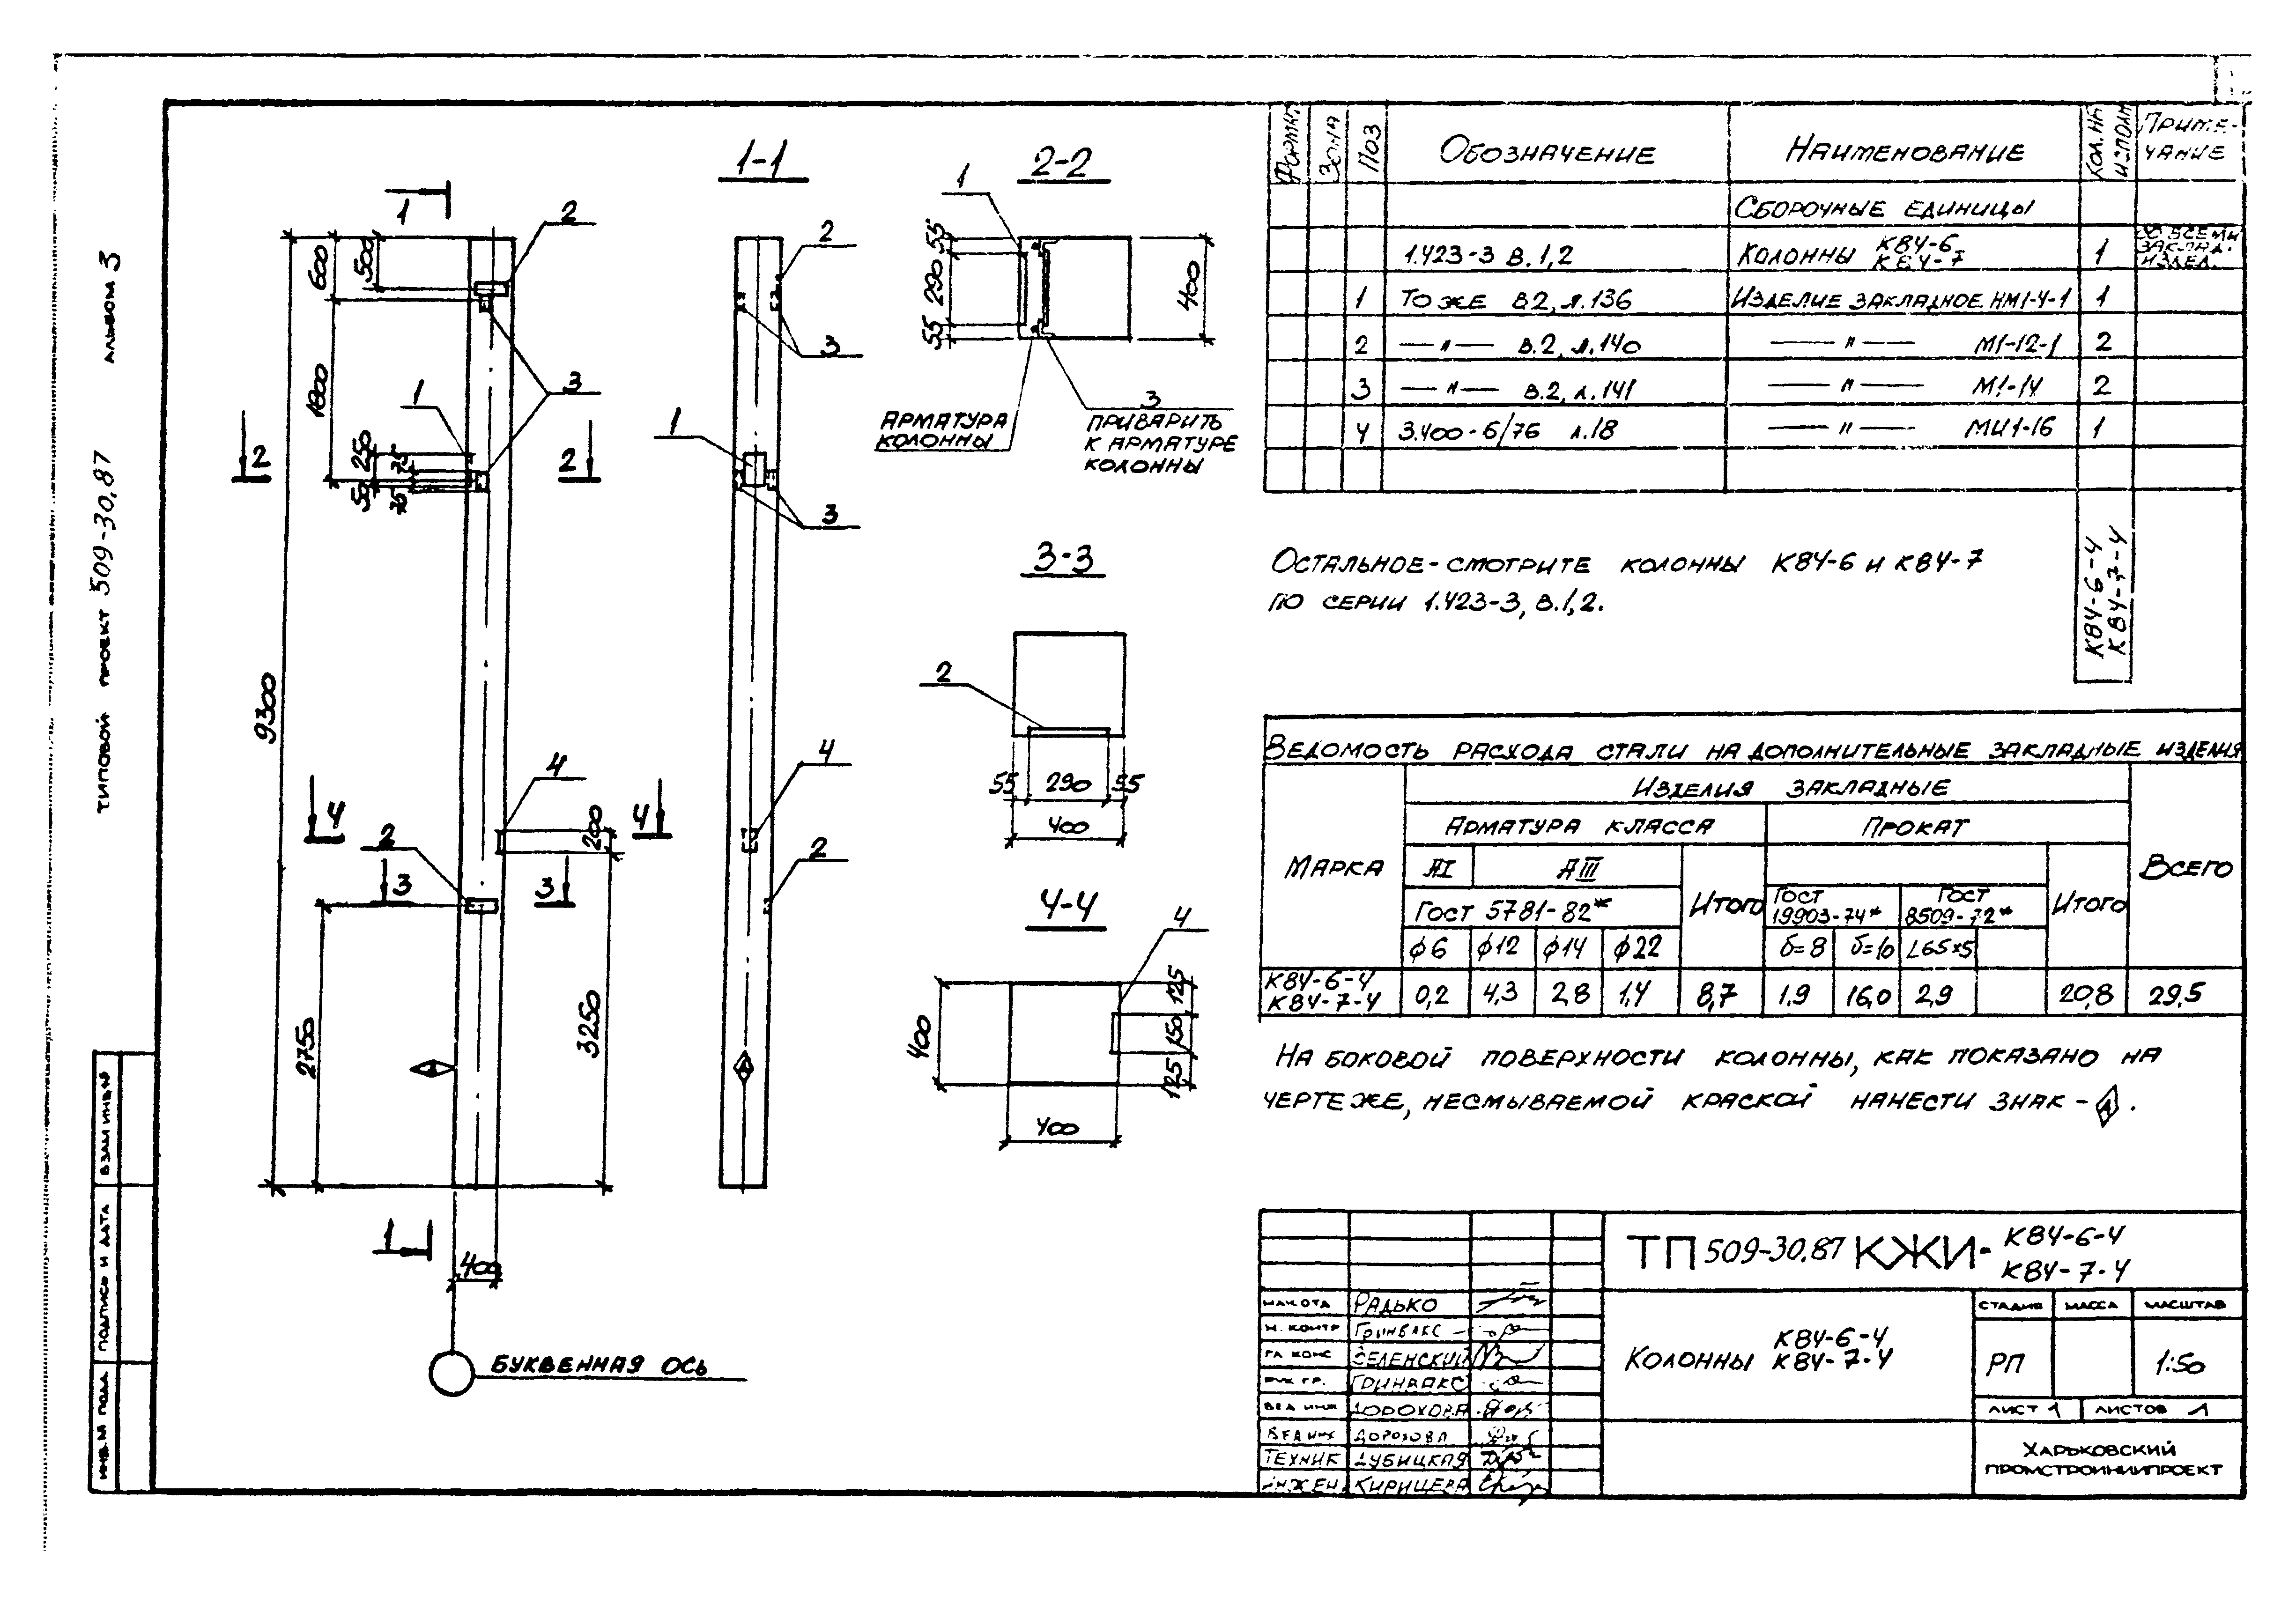 ТИПОВОЙ ПРОЕКТ 509-30.87 АЛЬБОМ 3
1-1
2-2
3-3
4-4
1
2
3
1
2
2
4
4
4
2
3
3
1
2
3
1
3
4
2
1
2
4
600
500
1800
250
75
50
75
9300
2750
3250
200
400
БУКВЕННАЯ ОСЬ
55
290
55
400
АРМАТУРА
КОЛОННЫ
3
ПРИВАРИТЬ
К АРМАТУРЕ
КОЛОННЫ
55 290 55
400
400
125
150
125
400
ФОРМАТ ЗОНА ПОЗ ОБОЗНАЧЕНИЕ НАИМЕНОВАНИЕ КОЛ. НА ИСПОЛН ПРИМЕ-
ЧАНИЕ
СБОРОЧНЫЕ ЕДИНИЦЫ
1.423-3 В.1,2 КОЛОННЫ К84-6 К84-7 1 СО ВСЕМИ ЗАКЛАД. ИЗДЕЛ.
1 ТО ЖЕ В2, Л.136 ИЗДЕЛИЕ ЗАКЛАДНОЕ НМ1-4-1 1
2 —〃— В.2, Л.140 —〃— М1-12-1 2
3 —〃— В.2, Л.141 —〃— М1-14 2
4 3.400-6/76 Л.18 —〃— МИ1-16 1
К84-6-4
К84-7-4
ОСТАЛЬНОЕ-СМОТРИТЕ КОЛОННЫ К84-6 И К84-7
ПО СЕРИИ 1.423-3, В.1,2.
ВЕДОМОСТЬ РАСХОДА СТАЛИ НА ДОПОЛНИТЕЛЬНЫЕ ЗАКЛАДНЫЕ ИЗДЕЛИЯ
МАРКА ИЗДЕЛИЯ ЗАКЛАДНЫЕ ВСЕГО
АРМАТУРА КЛАССА ПРОКАТ
АI АIII ИТОГО ИТОГО
ГОСТ 5781-82* ГОСТ 19903-74* ГОСТ 8509-72*
ф6 ф12 ф14 ф22 б=8 б=10 L65×5
К84-6-4
К84-7-4 0,2 4,3 2,8 1,4 8,7 1,9 16,0 2,9 20,8 29,5
НА БОКОВОЙ ПОВЕРХНОСТИ КОЛОННЫ, КАК ПОКАЗАНО НА
ЧЕРТЕЖЕ, НЕСМЫВАЕМОЙ КРАСКОЙ НАНЕСТИ ЗНАК - .
ТП 509-30.87 КЖИ- К84-6-4
К84-7-4
НАЧ.ОТД РАДЬКО
Н. КОНТР ГРИНВАКС
ГЛ КОНС ЗЕЛЕНСКИЙ
РУК ГР. ГРИНВАКС
ВЕД ИНЖ ДОРОХОВА
ВЕД ИНЖ ДОРОХОВА
ТЕХНИК ДУБИЦКАЯ
ИНЖЕН. КИРИЦЕВА
КОЛОННЫ К84-6-4
К84-7-4
СТАДИЯ МАССА МАСШТАБ
РП 1:50
ЛИСТ 1 ЛИСТОВ 1
ХАРЬКОВСКИЙ
ПРОМСТРОЙНИИПРОЕКТ
ВЗАМ ИНВ.№
ПОДПИСЬ И ДАТА
ИНВ.№ ПОДЛ